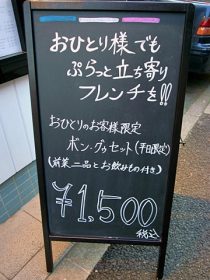 おひとり様でも
ぷらっと立ち寄り
フレンチを!!
おひとりのお客様限定
ボン・グゥセット(平日限定)
(前菜二品とお飲みもの付き)
¥1,500
税込